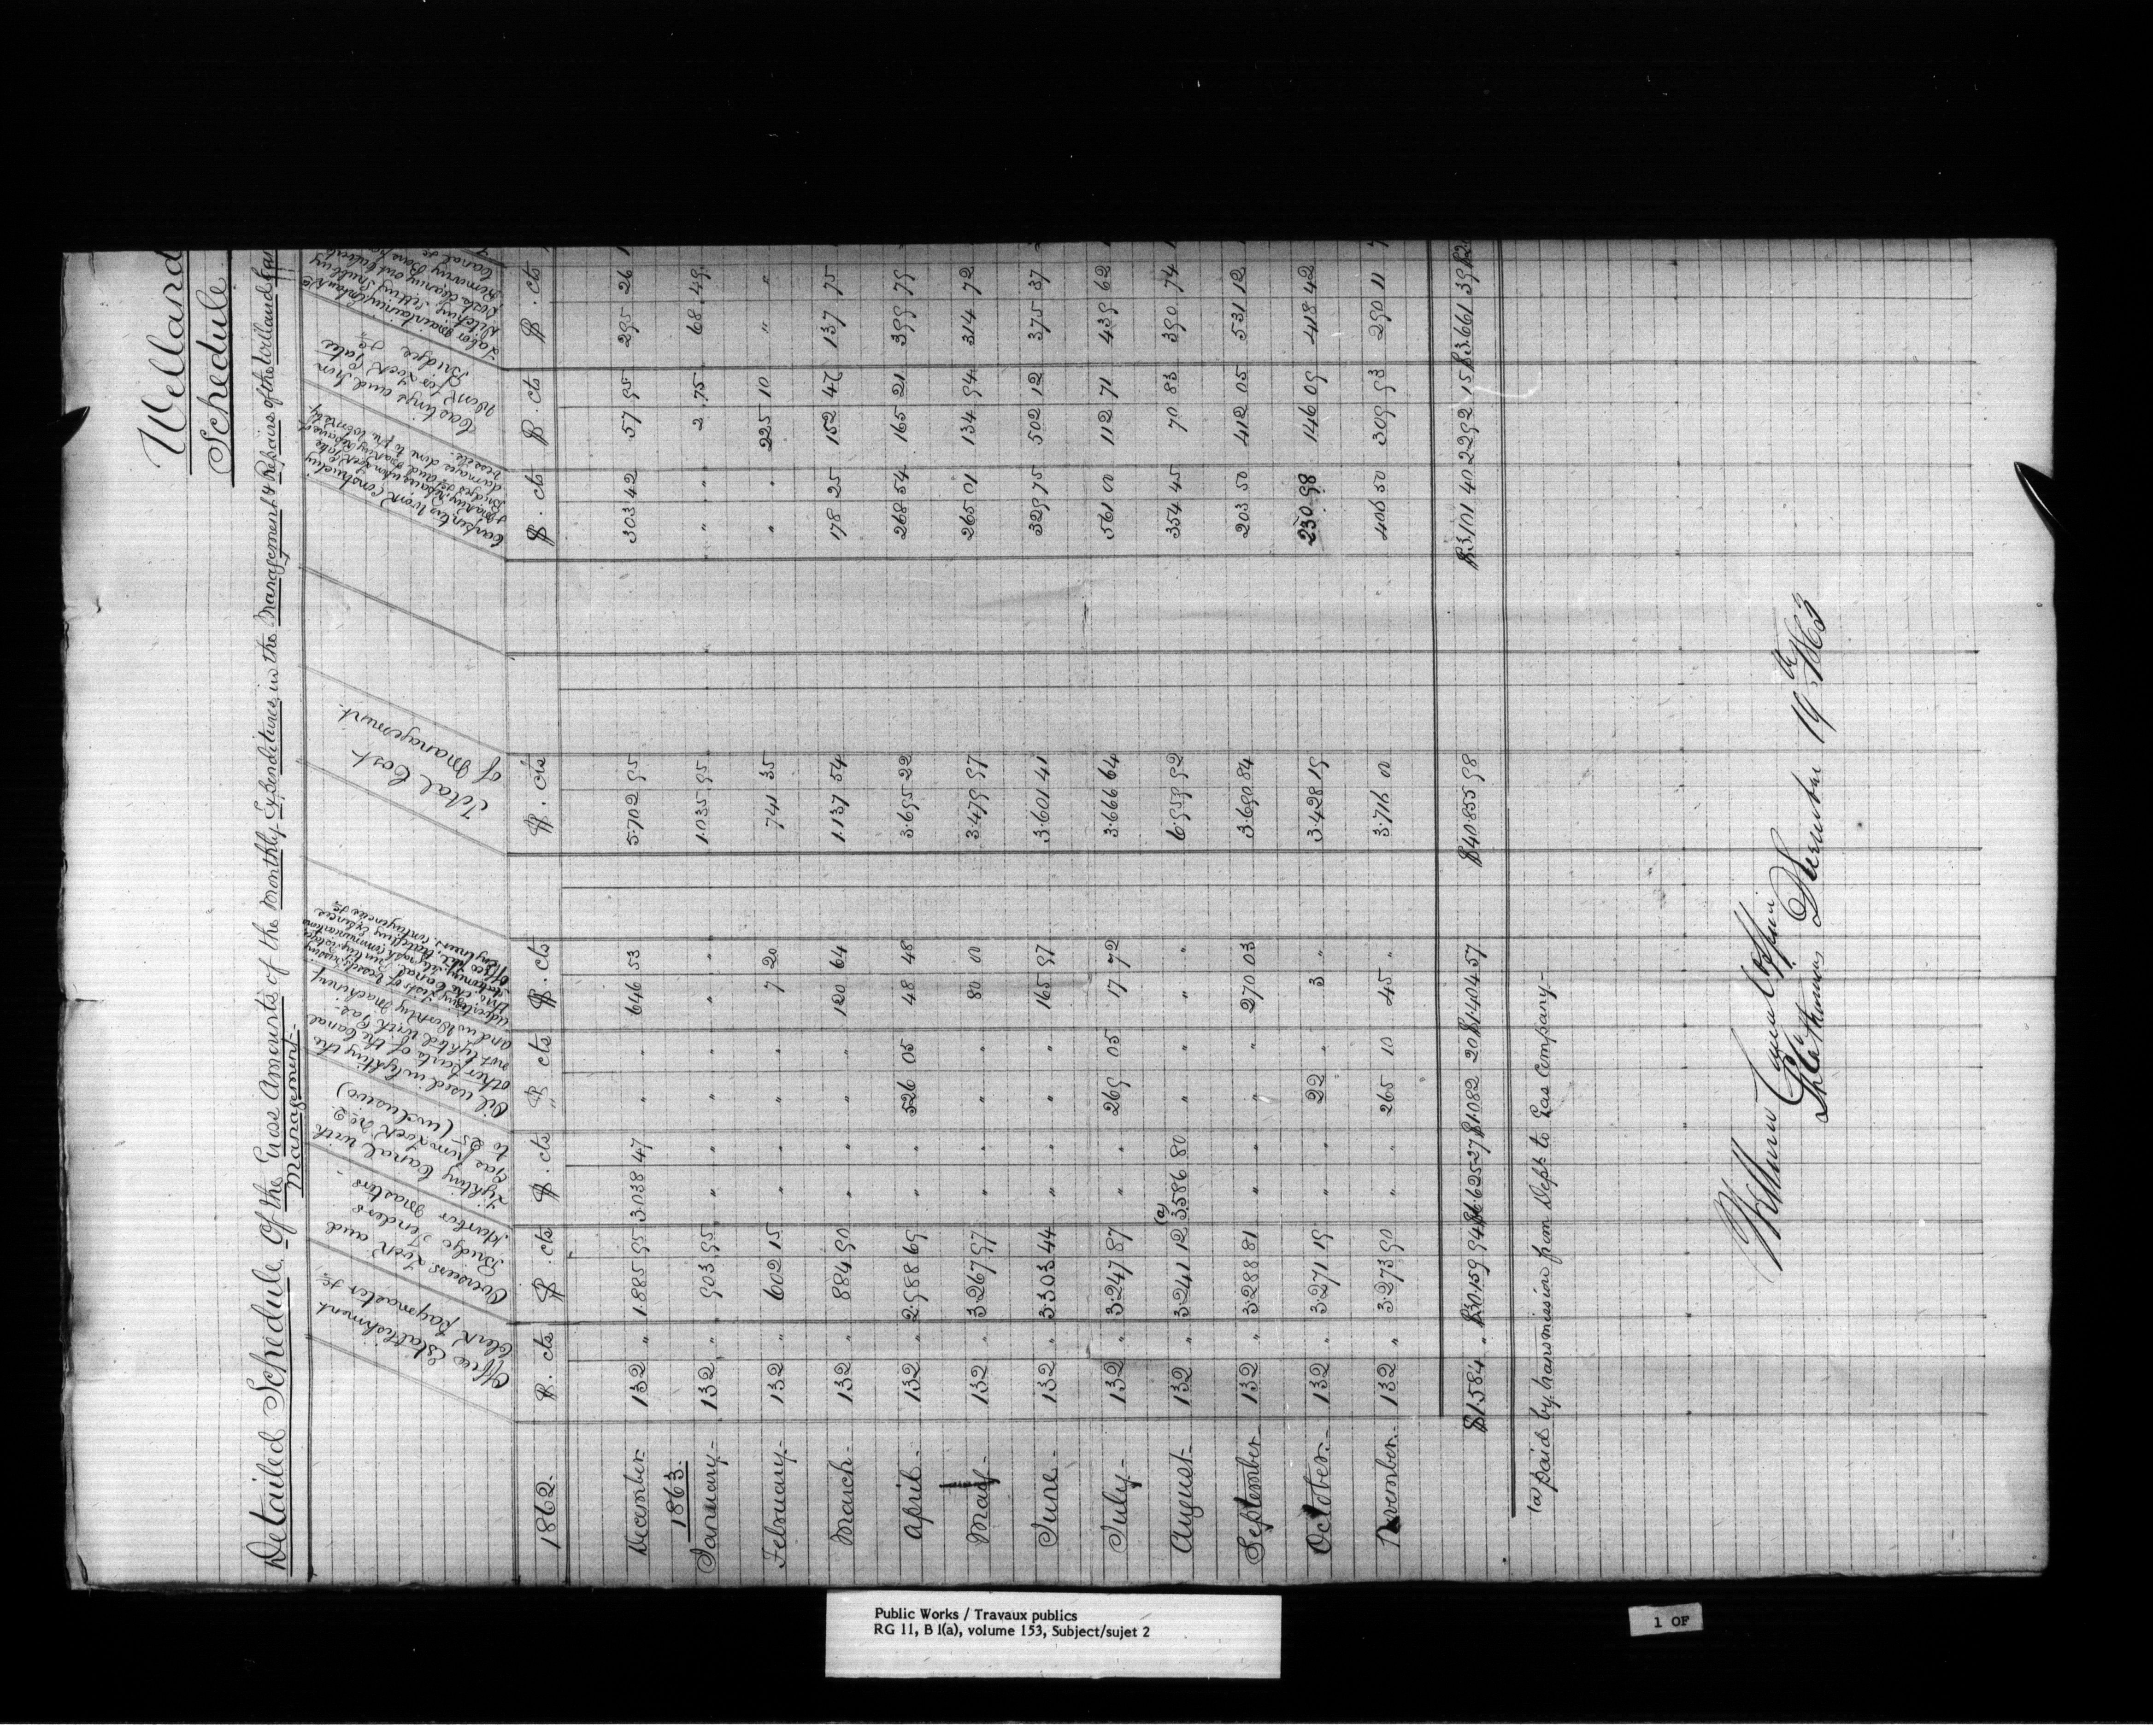 Welland
Schedule
Detailed Schedule Of the Gross Amounts of the Monthly Expenditures in the Management & Repairs of the Welland Can
Management.
Office Establishment Clerk Paymaster &c
Overseers Lock and Bridge Tenders Harbor Masters -
Lighting Canal with Gas from Lock No. 2 to 25 (inclusive)
Oil used in lighting the other parts of the Canal not lighted with Gas - and in Working Machinery
Total Cost of Management.
Castings and Iron Work for Lock Gates Bridges &c
1862. $. cts $. cts $. cts $ cts $. cts $. cts $. cts $. cts $. cts
December 132 " 1.885 95 3.038 47 " " 646 53 5.702 95 303 42 57 95 295 26
1863.
January - 132 " 903 95 " " " " " " 1.035 95 " " 2 75 68 49
February - 132 " 602 15 " " " " 7 20 741 35 " " 225 10 " "
March - 132 " 884 90 " " " " 120 64 1.137 54 178 25 152 47 137 75
April - 132 " 2.988 69 " " 526 05 48 48 3.695 22 268 54 165 21 399 79
May - 132 " 3.267 97 " " " " 80 00 3.479 97 265 01 134 94 314 72
June - 132 " 3.303 44 " " " " 165 97 3.601 41 329 75 502 12 375 37
July - 132 " 3.247 87 " " 269 05 17 72 3.666 64 561 00 112 71 439 62
August - 132 " 3.241 12 (a) 3.586 80 " " " " 6.959 92 354 45 70 83 390 74
September 132 " 3.288 81 " " " " 270 03 3.690 84 203 50 412 05 531 12
October - 132 " 3.271 19 " " 22 " 3 " 3.428 19 230 98 146 09 418 42
November 132 " 3.273 90 " " 265 10 45 " 3.716 00 406 50 309 93 290 11
$1.584 " $30.159 94 $6.625 27 $1.082 20 $1.404 57 $40.855 98 $3.101 40 2292 15 $3.661 39
(a) Paid by transmission from Dept. to Gas Company -
Welland Canal Office
St. Catharines December 19th 1863
Public Works / Travaux publics
RG 11, B 1(a), volume 153, Subject/sujet 2
1 OF